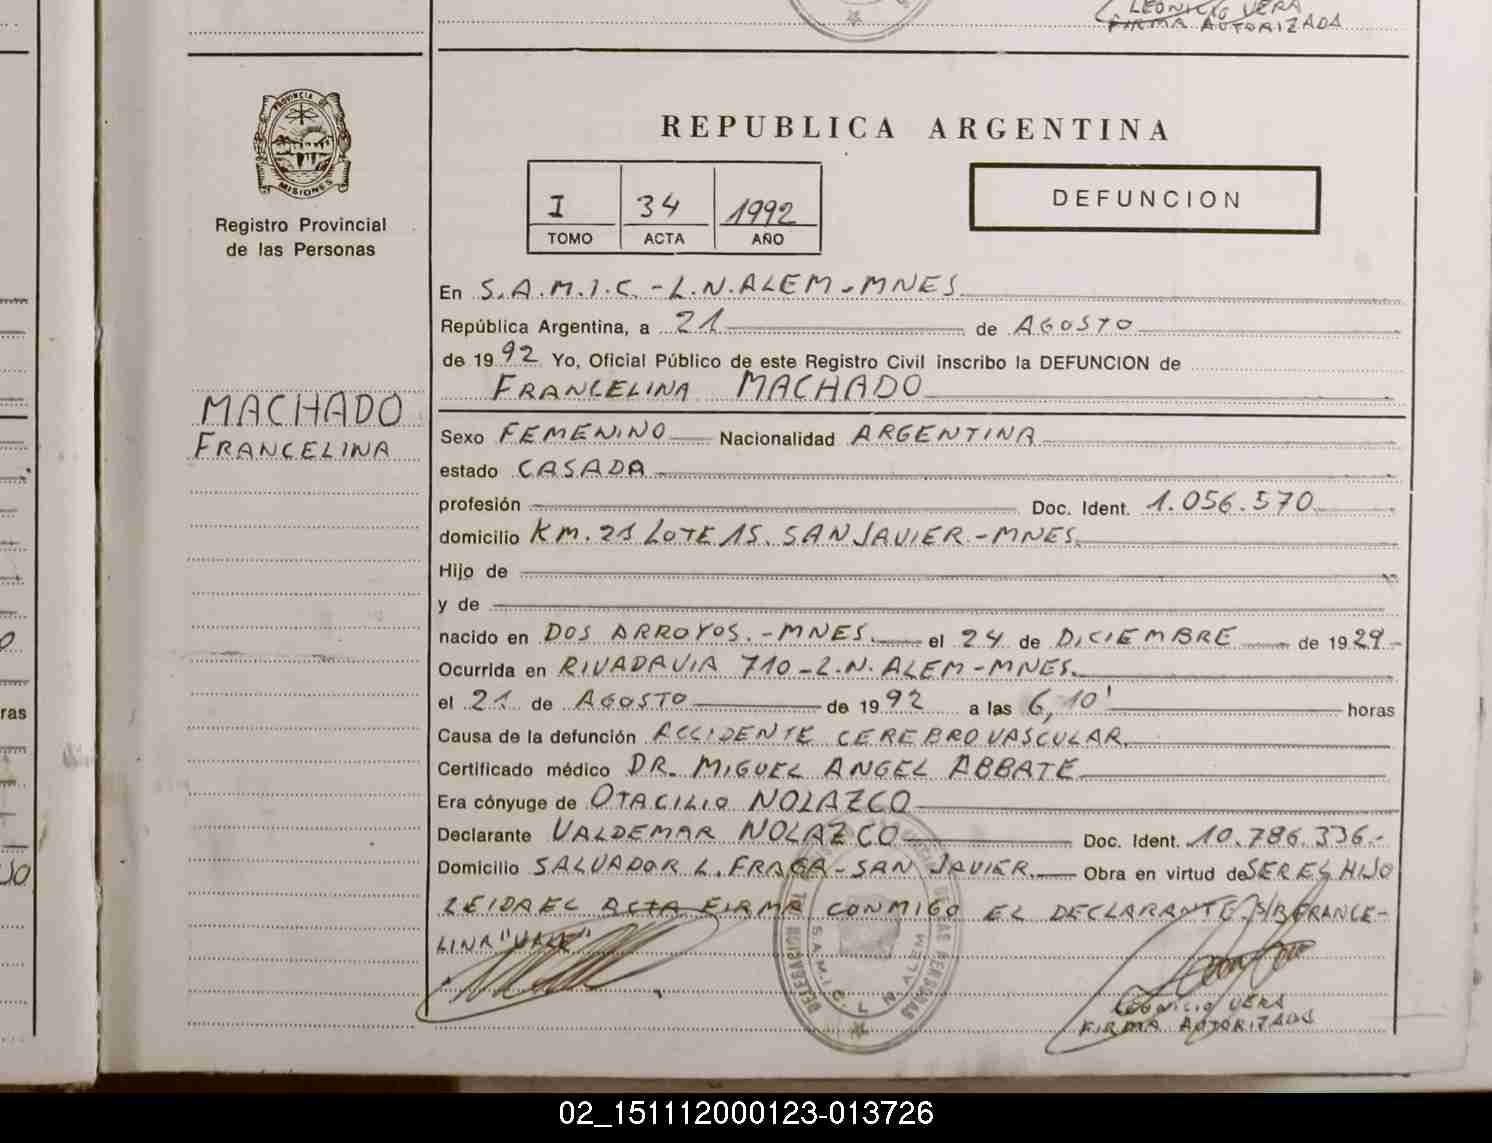 LEONICIO VERA
FIRMA AUTORIZADA
PROVINCIA DE
MISIONES
Registro Provincial
de las Personas
MACHADO
FRANCELINA
REPUBLICA ARGENTINA
I 34 1992
TOMO ACTA AÑO
DEFUNCION
En S.A.M.I.C. - L.N.ALEM - MNES
República Argentina, a 21 de AGOSTO
de 1992 Yo, Oficial Público de este Registro Civil inscribo la DEFUNCION de
FRANCELINA MACHADO
Sexo FEMENINO Nacionalidad ARGENTINA
estado CASADA
profesión Doc. Ident. 1.056.570
domicilio KM. 21 LOTE 15. SAN JAVIER.-MNES.
Hijo de
y de
nacido en DOS ARROYOS.-MNES. el 24 de DICIEMBRE de 1929-
Ocurrida en RIVADAVIA 710-L.N. ALEM-MNES.
el 21 de AGOSTO de 1992 a las 6,10' horas
Causa de la defunción ACCIDENTE CEREBRO VASCULAR.
Certificado médico DR. MIGUEL ANGEL ABBATE
Era cónyuge de OTACILIO NOLAZCO
Declarante VALDEMAR NOLAZCO Doc. Ident. 10.786.336.-
Domicilio SALVADOR L. FRAGA - SAN JAVIER. Obra en virtud de SER ES HIJO
LEIDA EL ACTA FIRMA CONMIGO EL DECLARANTE. S/B FRANCE-
LINA "VALE"
S.A.M.I.C. L. N. ALEM
LEONICIO VERA
FIRMA AUTORIZADA
02_151112000123-013726